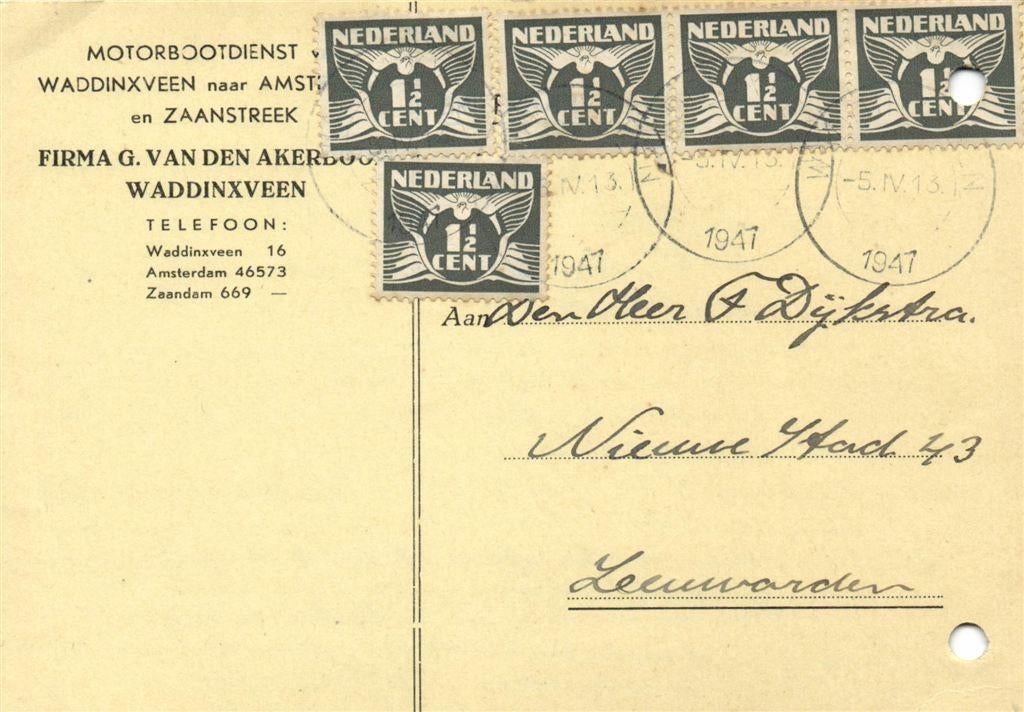 MOTORBOOTDIENST
WADDINXVEEN naar
en ZAANSTREEK
FIRMA G. VAN DEN
WADDINXVEEN
TELEFOON:
Waddinxveen 16
Amsterdam 46573
Zaandam 669 —
NEDERLAND
1½
CENT
NEDERLAND
1½
CENT
NEDERLAND
1½
CENT
NEDERLAND
1½
CENT
NEDERLAND
1½
CENT
IV. 13.
1947
-5. IV. 13.
1947
-5. IV. 13.
1947
Aan Den Heer F Dijkstra.
Nieuwe Stad 43
Leeuwarden